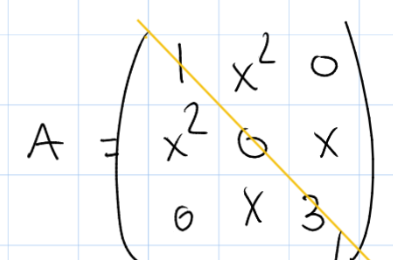 1 x² 0
A = x² 0 x
0 x 3